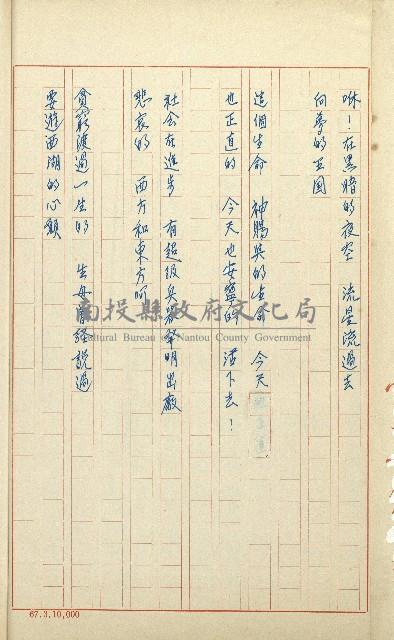 咻！在黑暗的夜空 流星流過去
向夢的王国
這個生命 神賜與的生命 今天
也正直的 今天也安寧的 活下去！
社会在進步 有超级兵器發明出廠
悲哀的 西方和東方啊
貧窮渡過一生的 生母曾経説過
要遊西湖的心願
南投縣政府文化局
Cultural Bureau of Nantou County Government
67.3.10,000